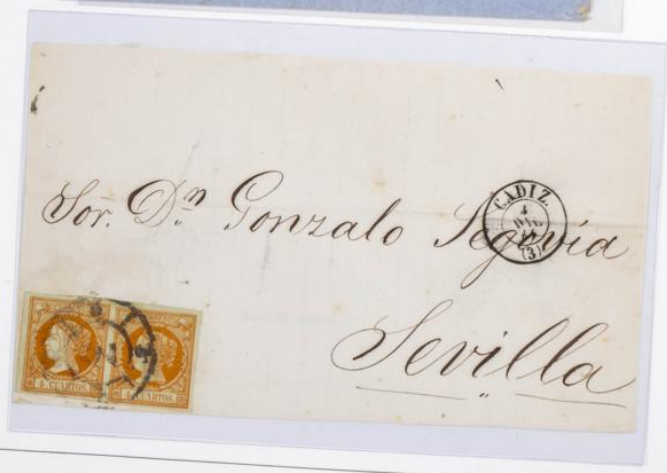 Sor. Dn Gonzalo Segovia
CADIZ.
4
(3)
Sevilla
4 CUARTOS. 4 CUARTOS.